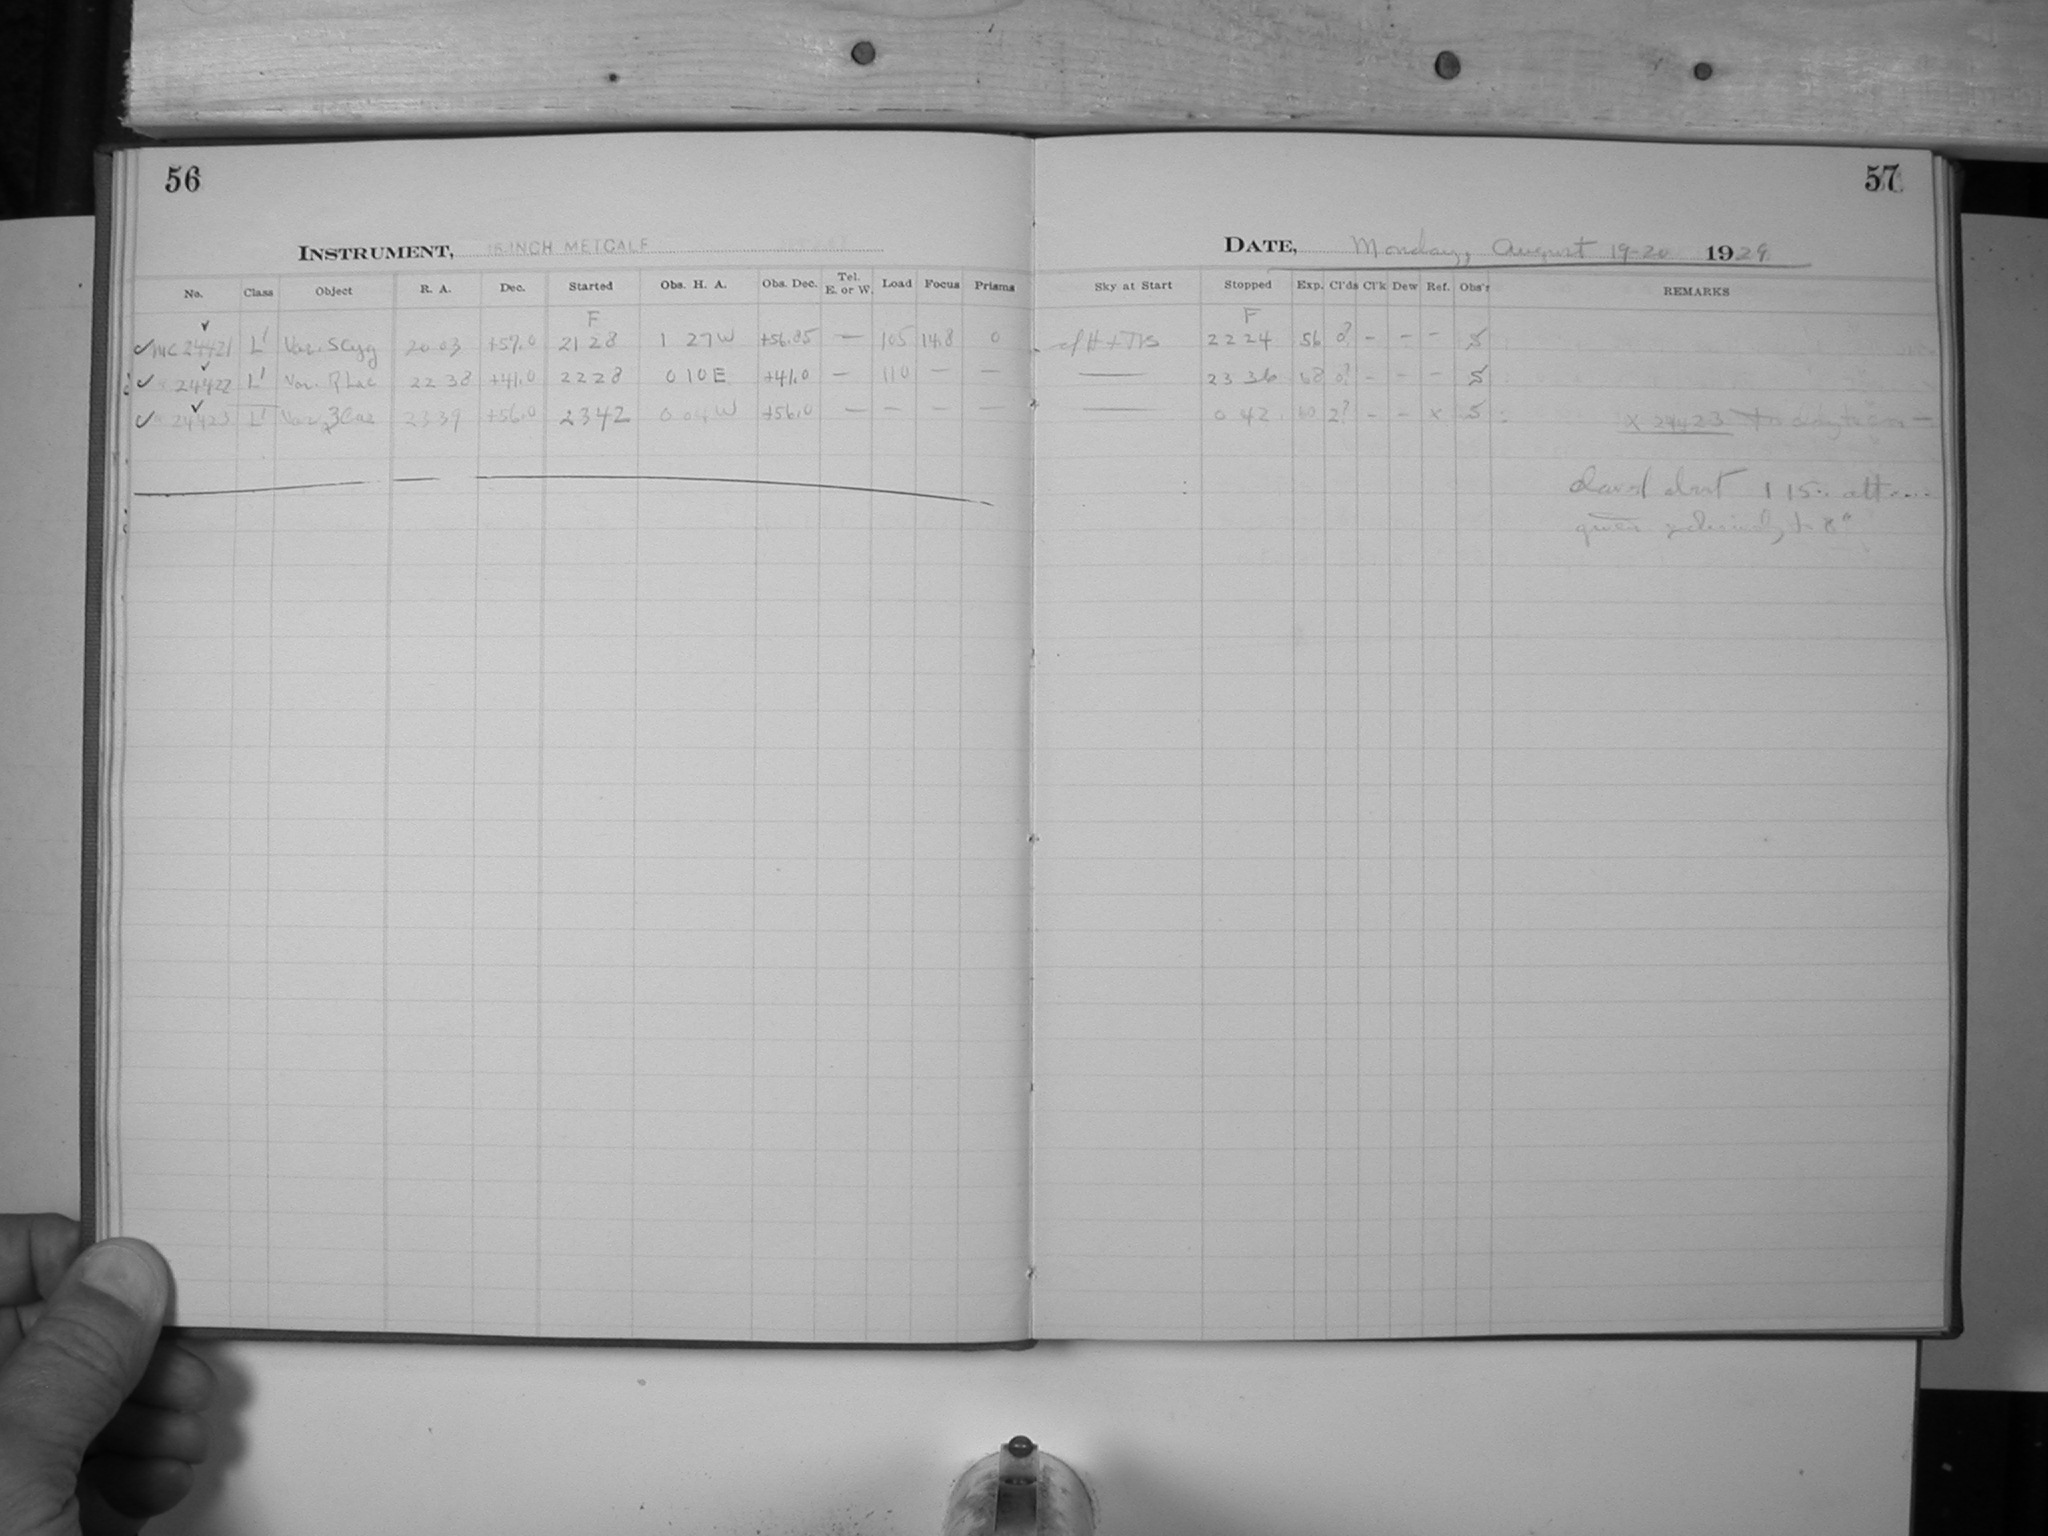 56
57
INSTRUMENT, 16-INCH METCALF
DATE, Monday, August 19-20 1929
No. Class Object R. A. Dec. Started Obs. H. A. Obs. Dec. Tel. E. or W. Load Focus Prisms Sky at Start Stopped Exp. Cl'ds Cl'k Dew Ref. Obs'r REMARKS
F F
✓ MC 24421 L' Var. S Cyg 20 03 +57.0 21 28 1 27 W +56.85 — 105 14.8 0 22 24 56 0? - - - S
✓ " 24422 L' Var. R Lac 22 38 +41.0 22 28 0 10 E +41.0 — 110 — — —— 23 36 68 0? - - - S
✓ " 24423 L' Var. Z Cas 23 39 +56.0 23 42 0 04 W +56.0 — — — — —— 0 42 60 2? - - x S
x 24423
1 15
given exclusively to 8"